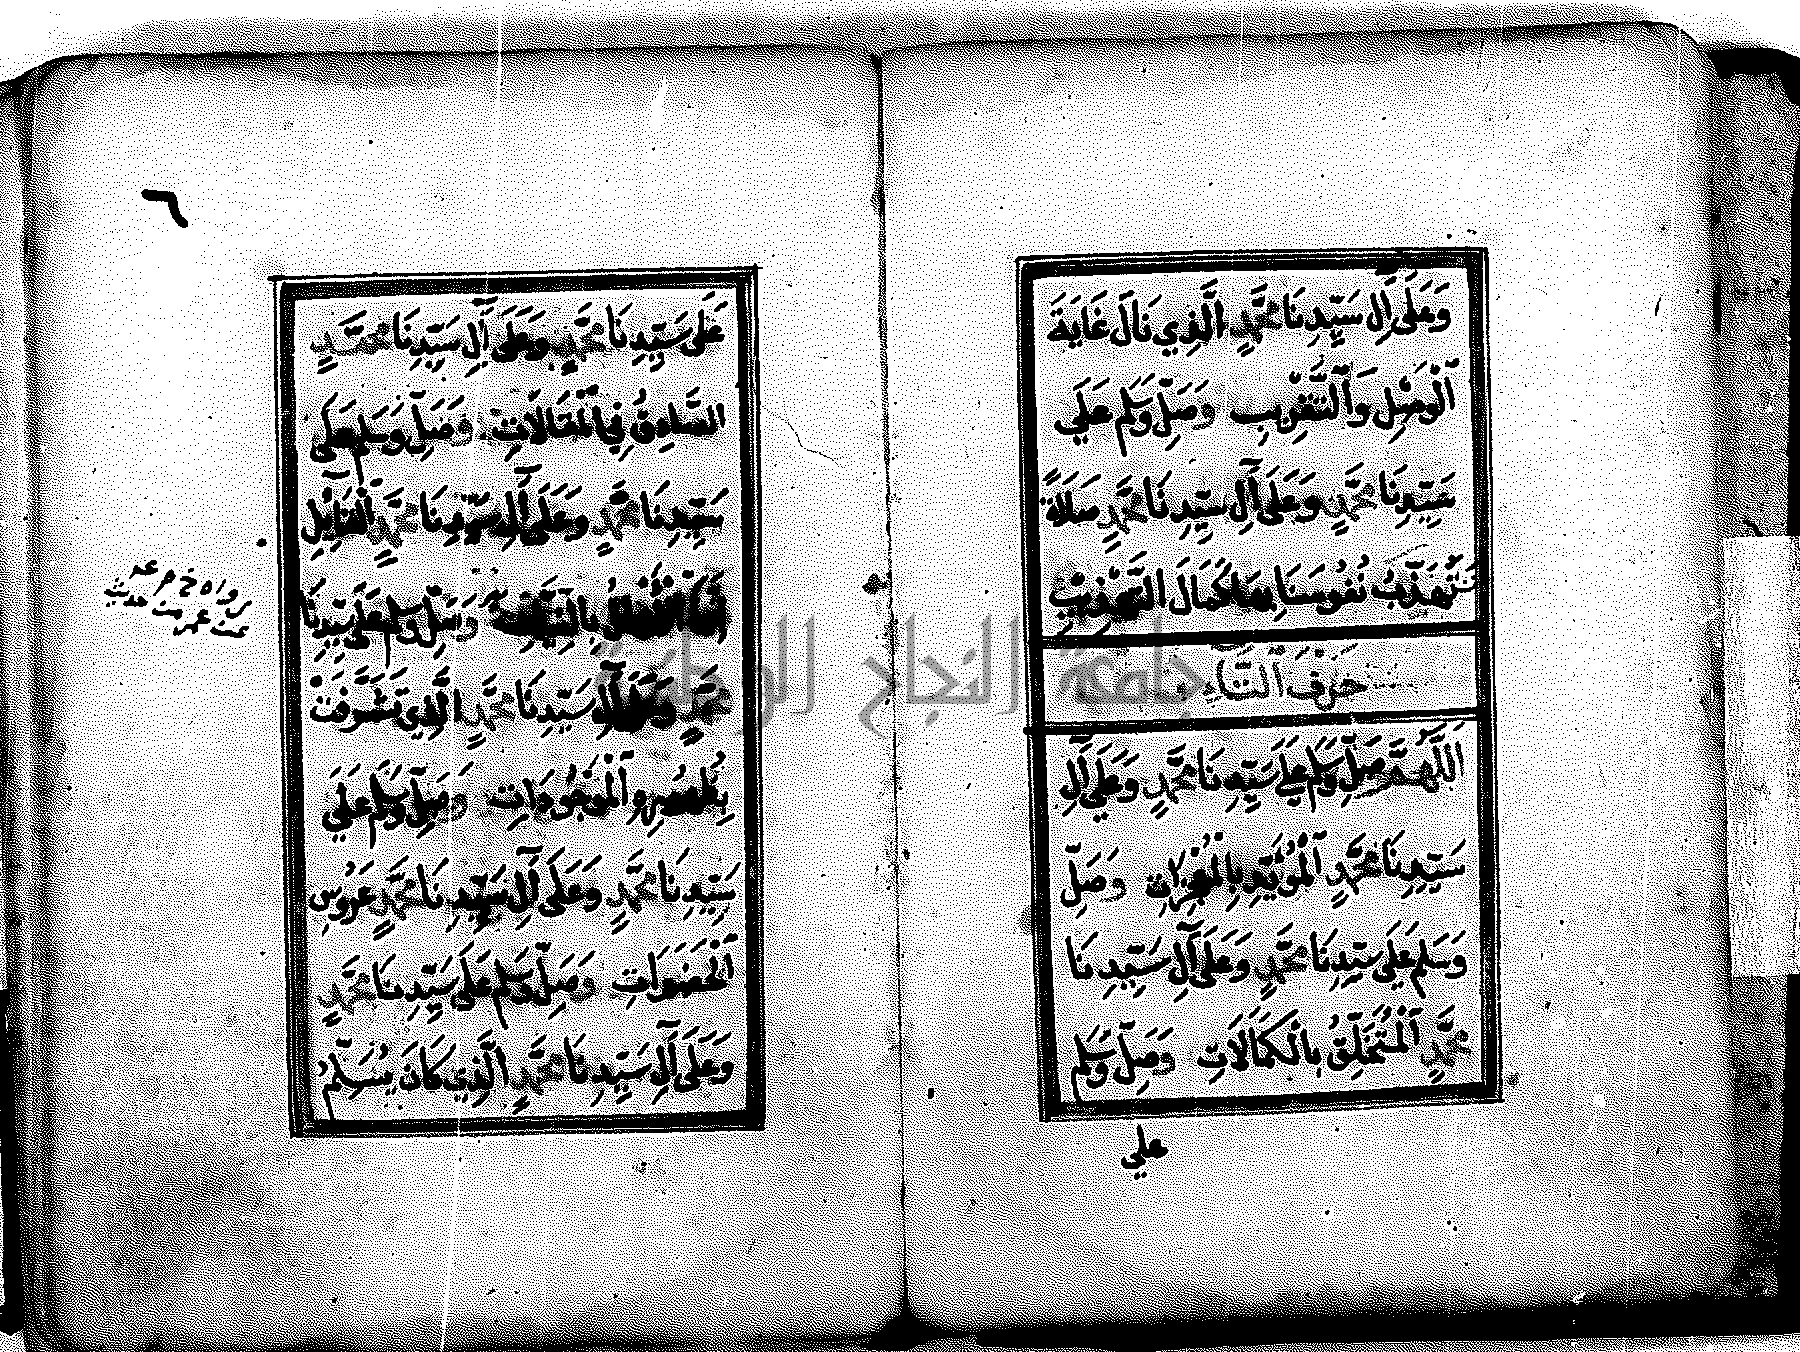 وَعَلَى آلِ سَيِّدِنَا مُحَمَّدٍ الَّذِي نَالَ غَايَةَ
الْوَصْلِ وَالتَّقْرِيبِ وَصَلِّ وَسَلِّمْ عَلَى
سَيِّدِنَا مُحَمَّدٍ وَعَلَى آلِ سَيِّدِنَا مُحَمَّدٍ صَلَاةً
تُهَذِّبُ نُفُوسَنَا بِهَا كَمَالَ التَّهْذِيبِ
حَرْفُ التَّاءِ
اللَّهُمَّ صَلِّ وَسَلِّمْ عَلَى سَيِّدِنَا مُحَمَّدٍ وَعَلَى آلِ
سَيِّدِنَا مُحَمَّدٍ الْمُؤَيَّدِ بِالْمُعْجِزَاتِ وَصَلِّ
وَسَلِّمْ عَلَى سَيِّدِنَا مُحَمَّدٍ وَعَلَى آلِ سَيِّدِنَا
مُحَمَّدٍ الْمُتَخَلِّقِ بِالْكَمَالَاتِ وَصَلِّ وَسَلِّمْ
على
٦
عَلَى سَيِّدِنَا مُحَمَّدٍ وَعَلَى آلِ سَيِّدِنَا مُحَمَّدٍ
الصَّادِقِ فِي الْمَقَالَاتِ وَصَلِّ وَسَلِّمْ عَلَى
سَيِّدِنَا مُحَمَّدٍ وَعَلَى آلِ سَيِّدِنَا مُحَمَّدٍ الْقَائِلِ
بِالنِّيَّاتِ وَصَلِّ وَسَلِّمْ عَلَى سَيِّدِنَا
مُحَمَّدٍ وَعَلَى آلِ سَيِّدِنَا مُحَمَّدٍ الَّذِي تَشَرَّفَتْ
بِظُهُورِهِ الْمَوْجُودَاتُ وَصَلِّ وَسَلِّمْ عَلَى
سَيِّدِنَا مُحَمَّدٍ وَعَلَى آلِ سَيِّدِنَا مُحَمَّدٍ عَرُوسِ
الْحَضَرَاتِ وَصَلِّ وَسَلِّمْ عَلَى سَيِّدِنَا مُحَمَّدٍ
وَعَلَى آلِ سَيِّدِنَا مُحَمَّدٍ الَّذِي كَانَ يُسَلِّمُ
جامعة النجاح الوطنية